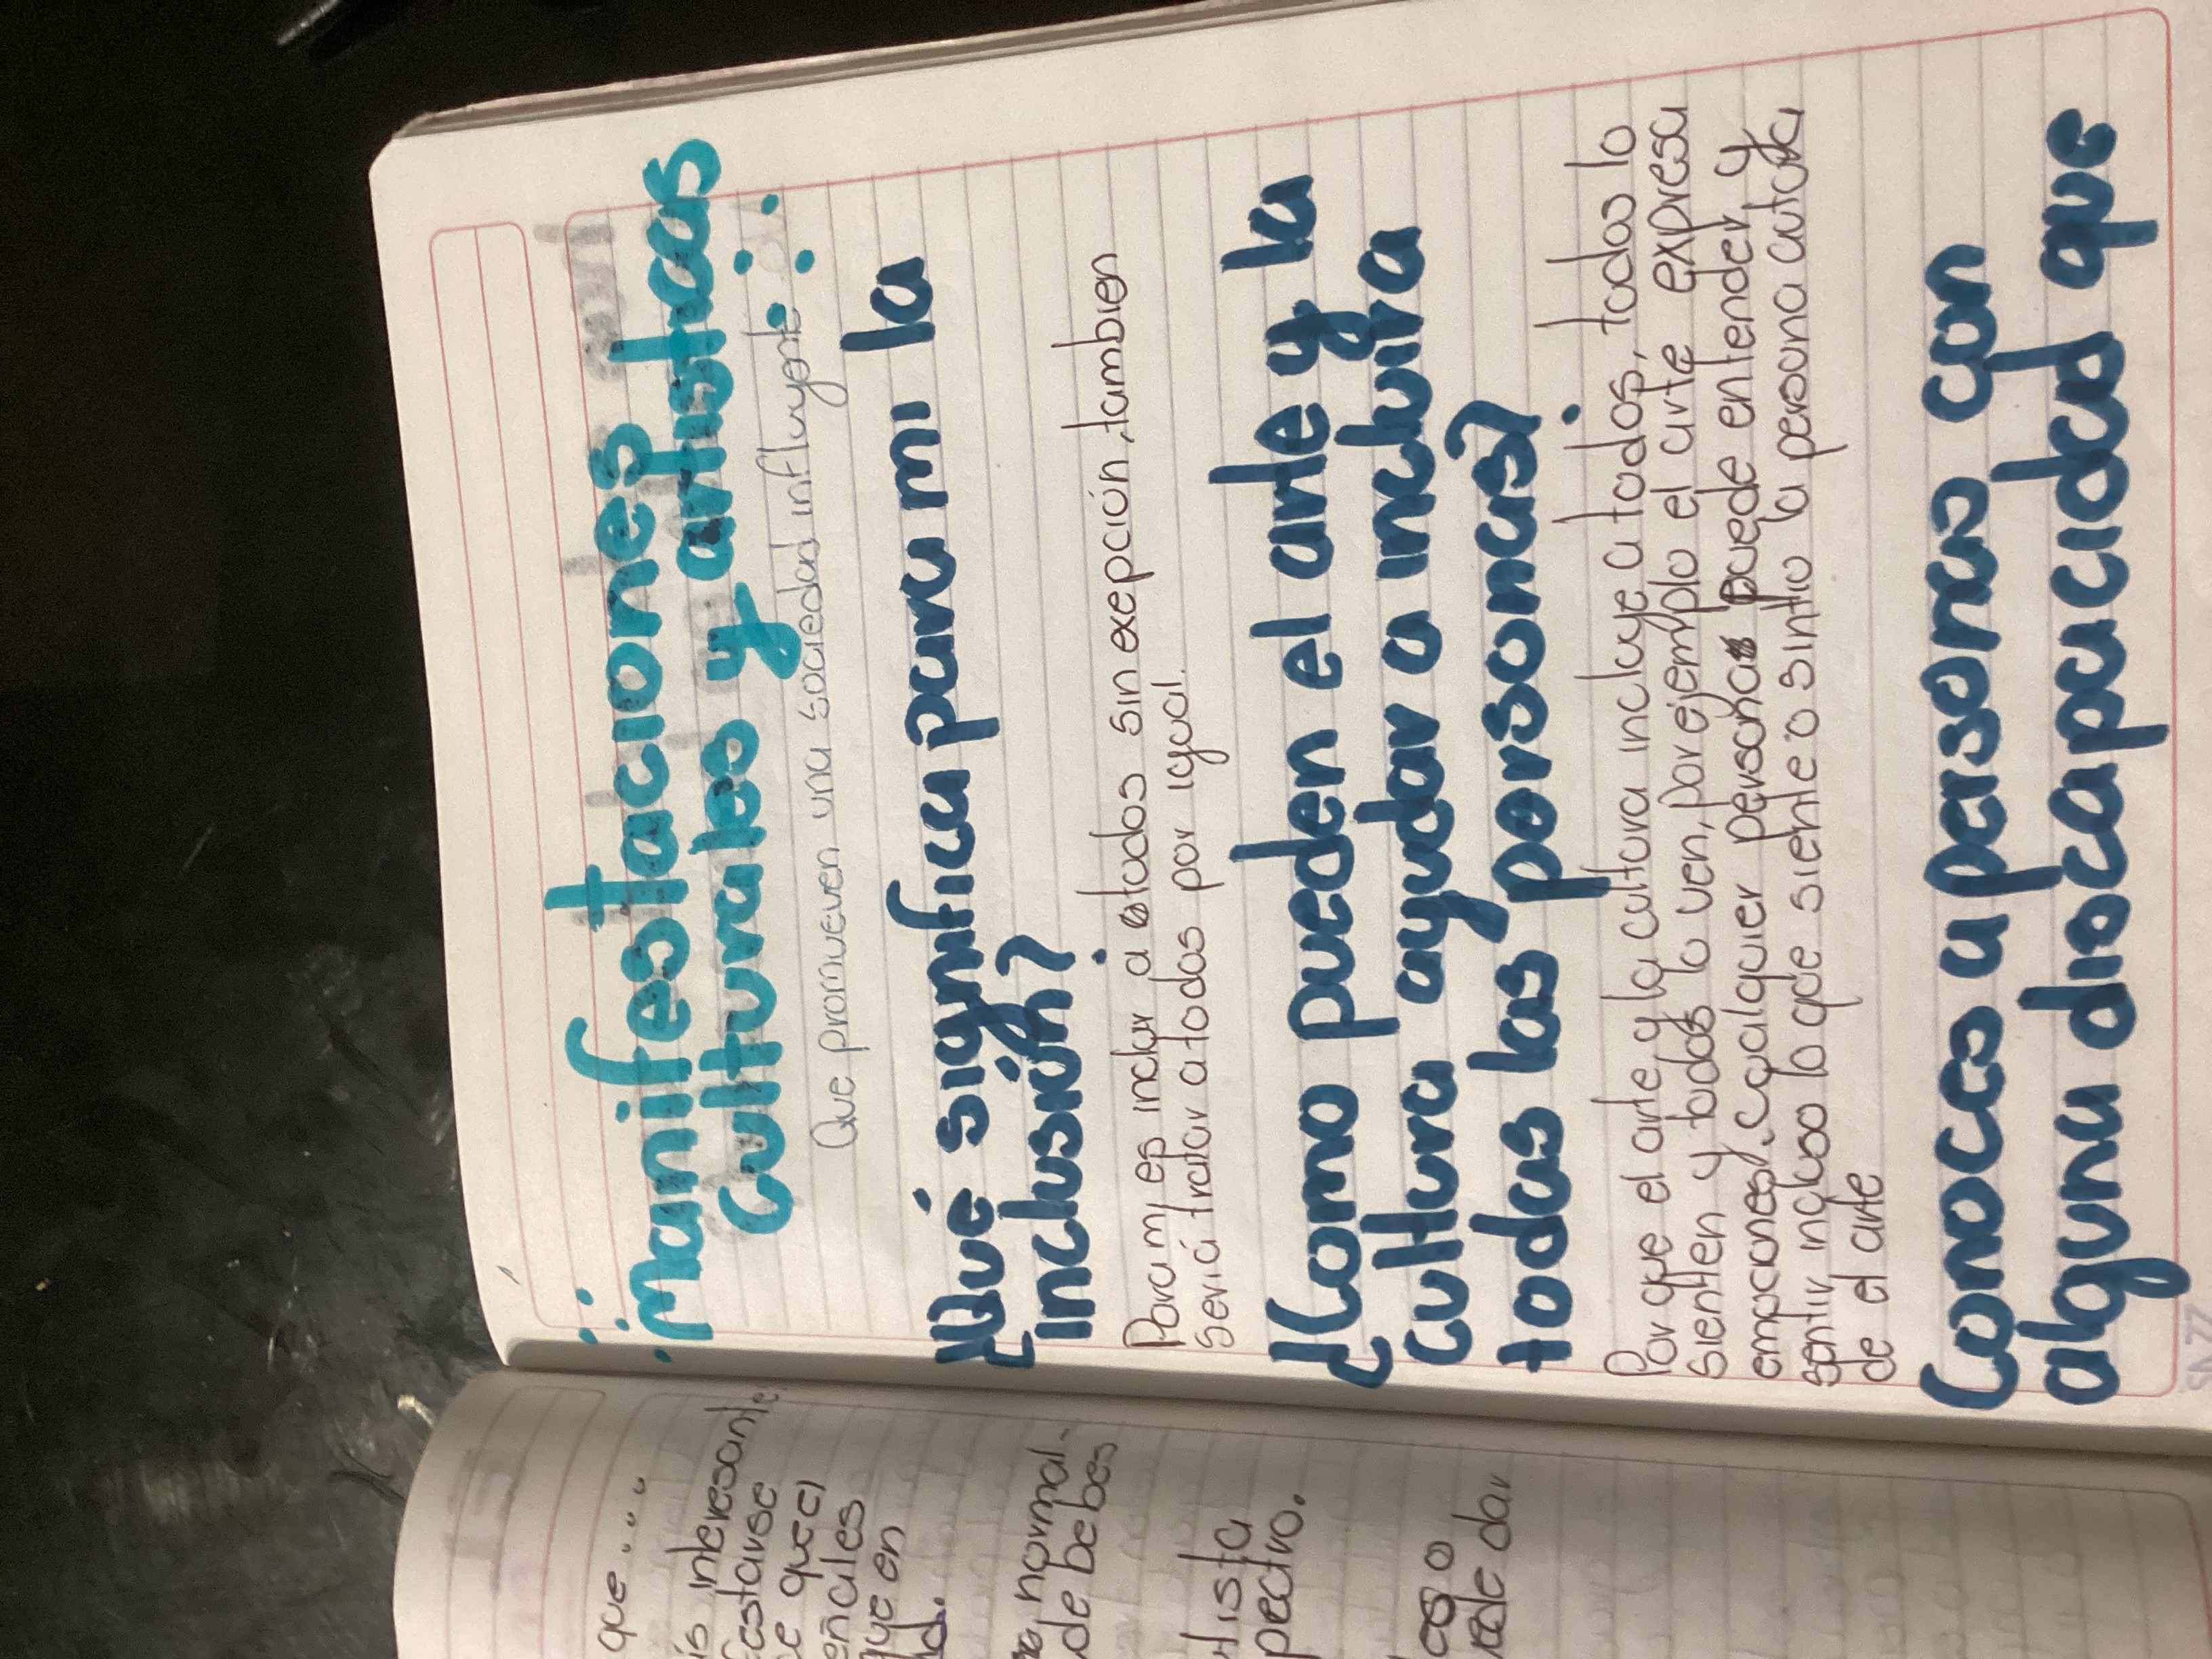 que....
ís interesante
estarse
e que cl
eñales
que en
d.
normal-
de bebes
tista
pectro.
co o
dar
Manifestaciones
Culturales y artisticas
Que promueven una sociedad influyente
¿Qué significa para mi la
inclusión?
Para mi es incluir a todos sin exepción, tambien
seriá tratar a todos por igual.
¿Como pueden el arte y la
cultura ayudar a incluira
todas las personas?
Por que el arte y la cultura incluye a todos, todos lo
sienten y todos lo ven, por ejemplo el arte expresa
empociones, cualquier persona puede entender y
sentir incluso lo que siente o sintio la persona autora
de el arte
Conoces a personas con
alguna discapacidad que